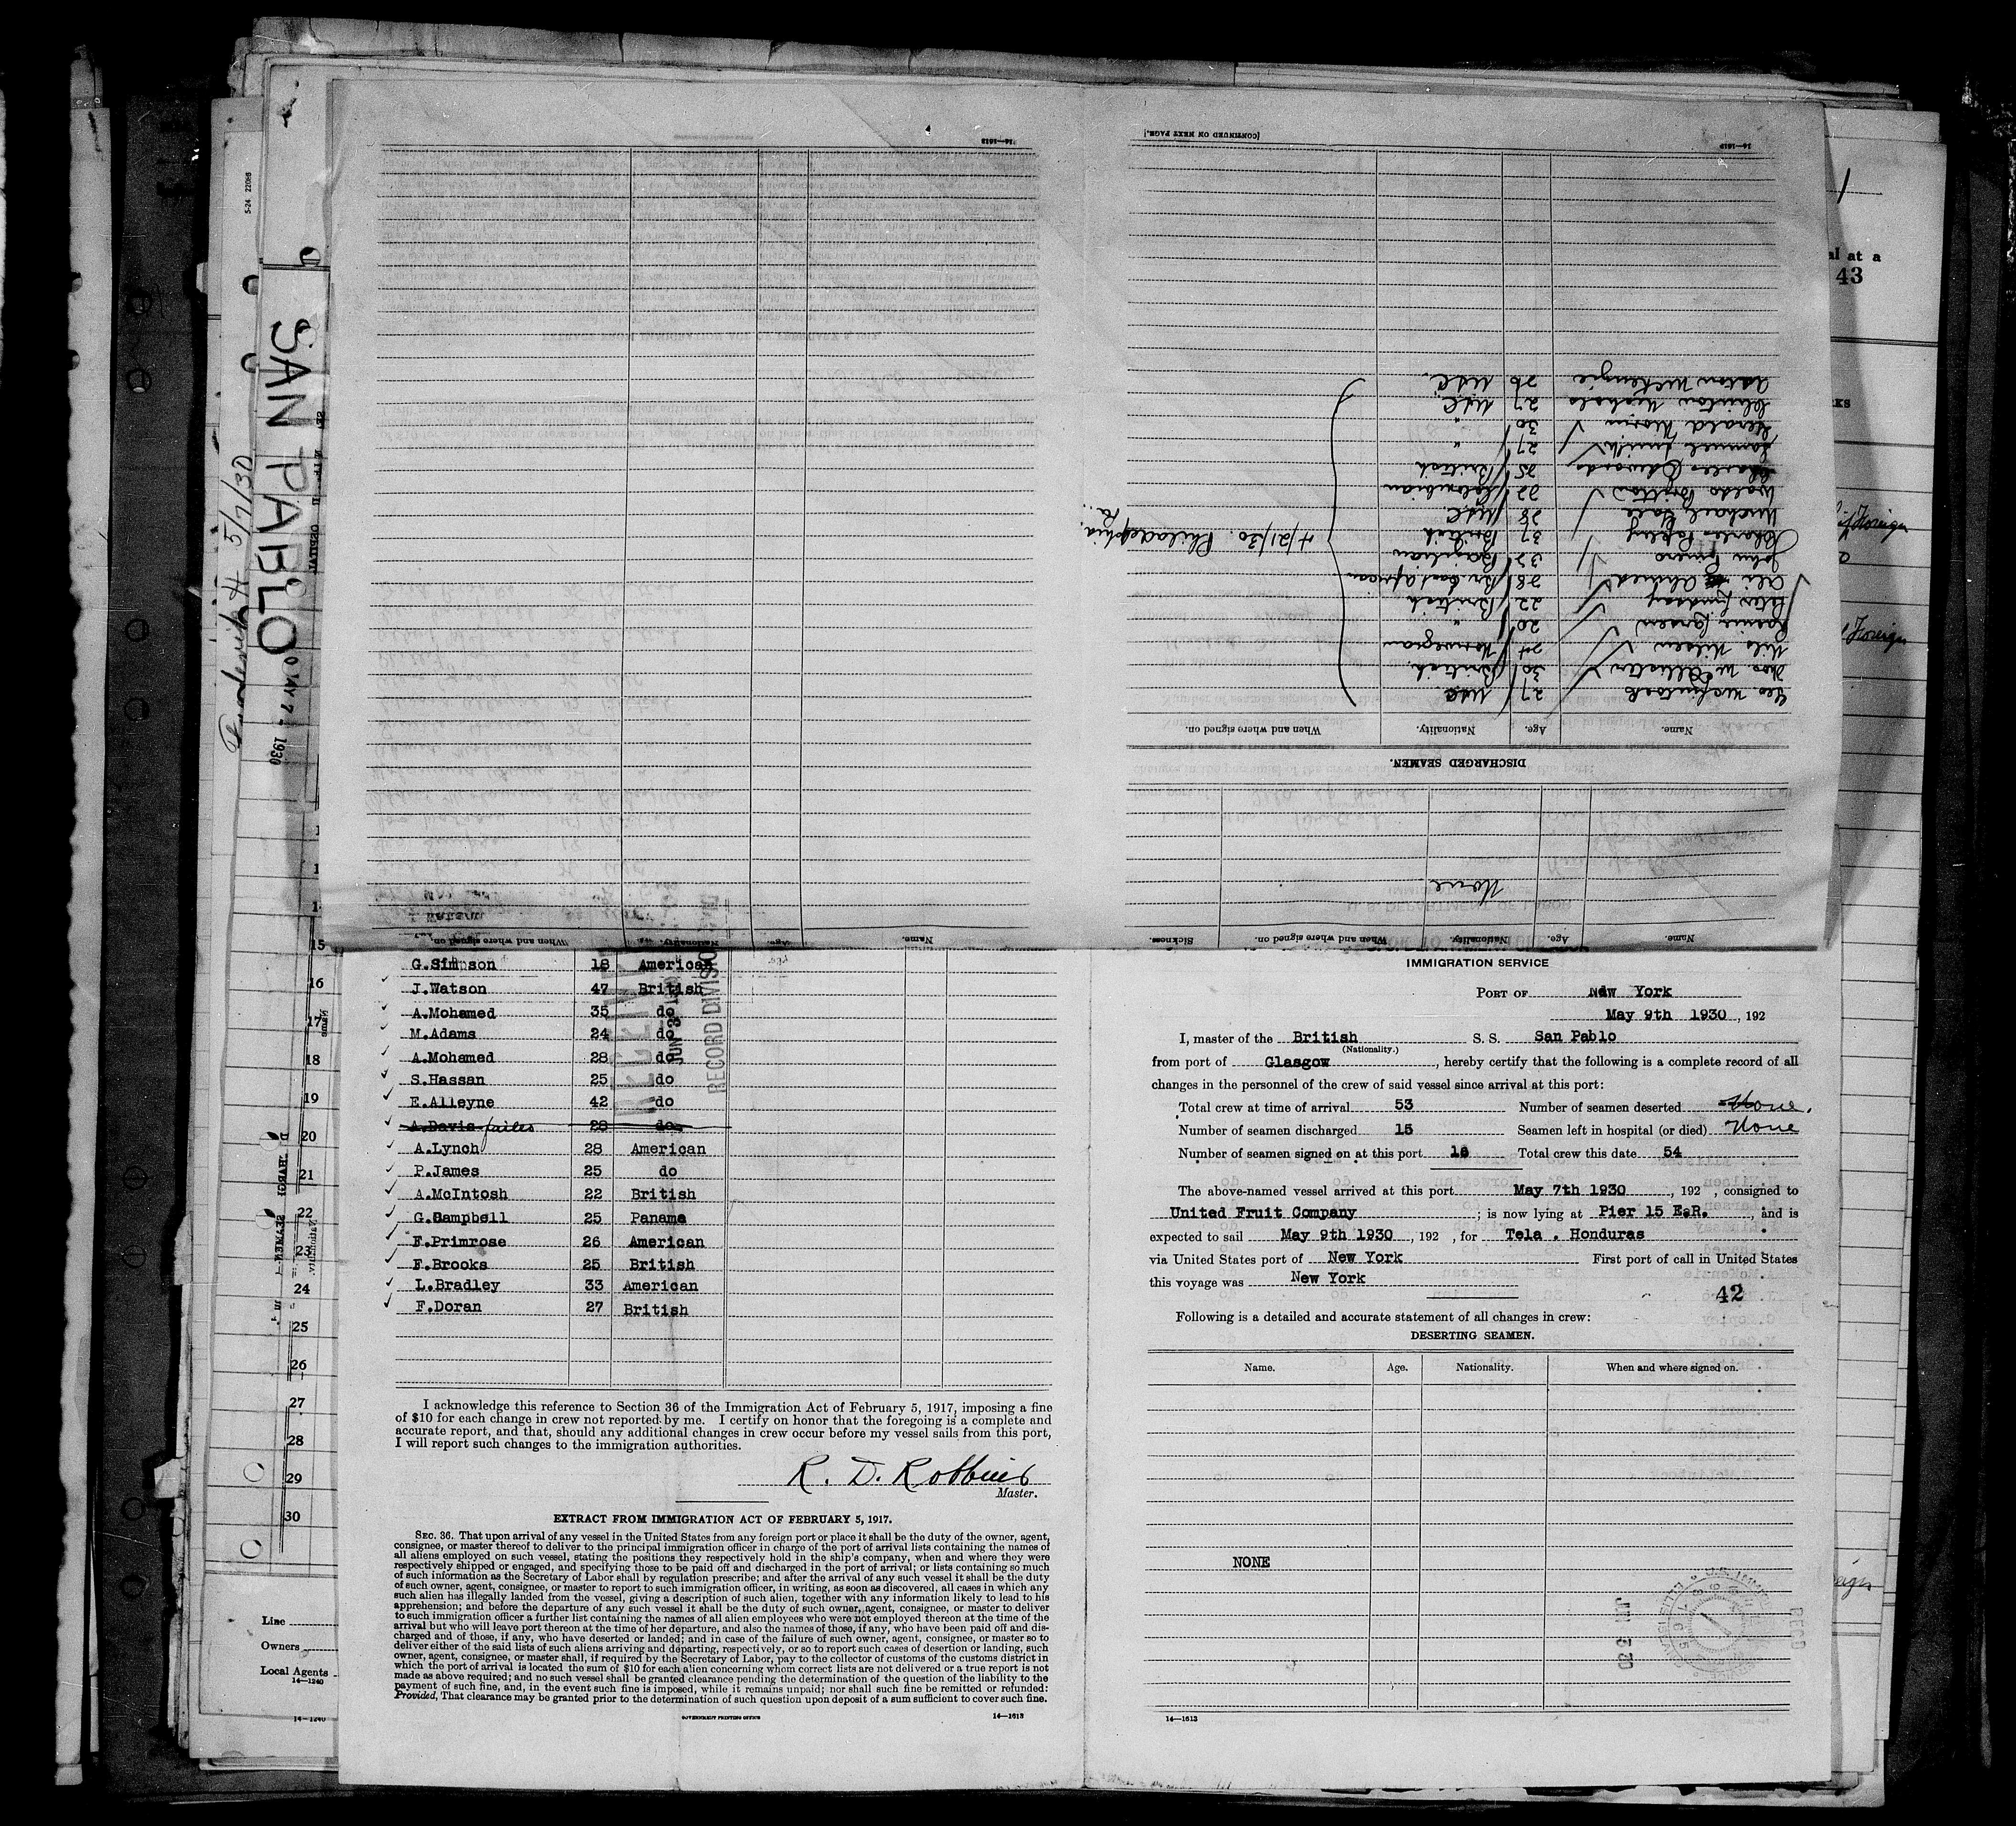 SAN PABLO
5/7/30
MAY 7 - 1930
5-24 22086
14—1613
[CONTINUED ON NEXT PAGE.]
14—1613
Name. Age. Nationality. When and where signed on. Sickness.
None
DISCHARGED SEAMEN.
Name. Age. Nationality. When and where signed on.
Geo. McClintock 27 USC
Thos. McAllister 30 British
Nils Nilsen 24 Norwegian
Larsen 20 "
Peter Lindsay 22 British
Ali Ahmed 28 Br. East African
John 32 Brazilian
Charles 37 British
Michael Gale 28 USC.
Waldo Britton 22 Colombian
Charles Edwards 25 British
Samuel Smith 27 "
Gerald Morris 30 "
Clinton Nichols 27 USC
Aston McKenzie 26 USC.
4/21/30. Philadelphia, Pa.
Name. Age. Nationality. When and where signed on.
al at a
43
Foreign
Foreign
G.Simpson 18 American
J.Watson 47 British
A.Mohamed 35 do
M.Adams 24 do
A.Mohamed 28 do
S.Hassan 25 do
E.Alleyne 42 do
A.Davis failed 28 do
A.Lynch 28 American
P.James 25 do
A.McIntosh 22 British
G.Campbell 25 Panama
F.Primrose 26 American
F.Brooks 25 British
L.Bradley 33 American
F.Doran 27 British
RECEIVED
JUN 3 1930
RECORD DIVISION
I acknowledge this reference to Section 36 of the Immigration Act of February 5, 1917, imposing a fine
of $10 for each change in crew not reported by me. I certify on honor that the foregoing is a complete and
accurate report, and that, should any additional changes in crew occur before my vessel sails from this port,
I will report such changes to the immigration authorities.
R. D. Robbins
Master.
EXTRACT FROM IMMIGRATION ACT OF FEBRUARY 5, 1917.
SEC. 36. That upon arrival of any vessel in the United States from any foreign port or place it shall be the duty of the owner, agent,
consignee, or master thereof to deliver to the principal immigration officer in charge of the port of arrival lists containing the names of
all aliens employed on such vessel, stating the positions they respectively hold in the ship's company, when and where they were
respectively shipped or engaged, and specifying those to be paid off and discharged in the port of arrival; or lists containing so much
of such information as the Secretary of Labor shall by regulation prescribe; and after the arrival of any such vessel it shall be the duty
of such owner, agent, consignee, or master to report to such immigration officer, in writing, as soon as discovered, all cases in which any
such alien has illegally landed from the vessel, giving a description of such alien, together with any information likely to lead to his
apprehension; and before the departure of any such vessel it shall be the duty of such owner, agent, consignee, or master to deliver
to such immigration officer a further list containing the names of all alien employees who were not employed thereon at the time of the
arrival but who will leave port thereon at the time of her departure, and also the names of those, if any, who have been paid off and dis-
charged and of those, if any, who have deserted or landed; and in case of the failure of such owner, agent, consignee, or master so to
deliver either of the said lists of such aliens arriving and departing, respectively, or so to report such cases of desertion or landing, such
owner, agent, consignee, or master shall, if required by the Secretary of Labor, pay to the collector of customs of the customs district in
which the port of arrival is located the sum of $10 for each alien concerning whom correct lists are not delivered or a true report is not
made as above required; and no such vessel shall be granted clearance pending the determination of the question of the liability to the
payment of such fine, and, in the event such fine is imposed, while it remains unpaid; nor shall such fine be remitted or refunded:
Provided, That clearance may be granted prior to the determination of such question upon deposit of a sum sufficient to cover such fine.
GOVERNMENT PRINTING OFFICE 14—1613
IMMIGRATION SERVICE
PORT OF New York
May 9th 1930 , 192
I, master of the British S. S. San Pablo
(Nationality.)
from port of Glasgow , hereby certify that the following is a complete record of all
changes in the personnel of the crew of said vessel since arrival at this port:
Total crew at time of arrival 53 Number of seamen deserted None.
Number of seamen discharged 15 Seamen left in hospital (or died) None
Number of seamen signed on at this port 16 Total crew this date 54
The above-named vessel arrived at this port May 7th 1930 , 192 , consigned to
United Fruit Company ; is now lying at Pier 15 E.R. , and is
expected to sail May 9th 1930 , 192 , for Tela . Honduras
via United States port of New York First port of call in United States
this voyage was New York
42
Following is a detailed and accurate statement of all changes in crew:
DESERTING SEAMEN.
Name. Age. Nationality. When and where signed on.
NONE
14—1613
15
16
17
18
19
20
21
22
23
24
25
26
27
28
29
30
Line
Owners
Local Agents
14—1240
14—1240